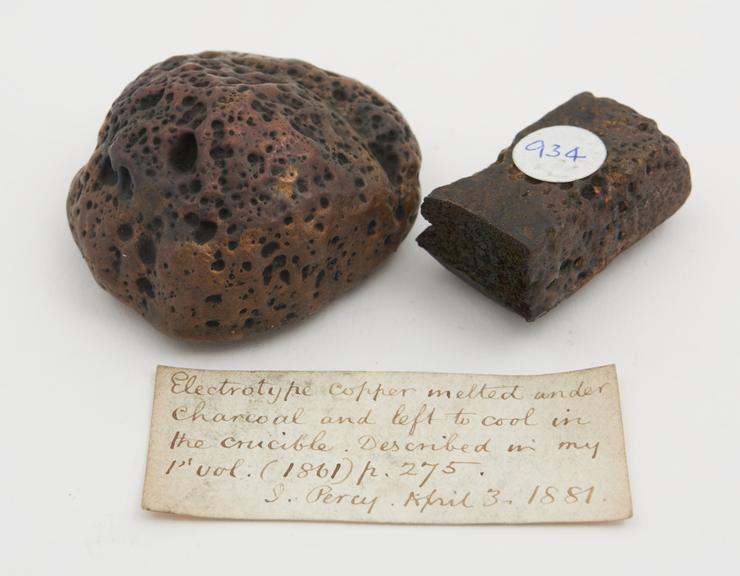 934
Electrotype copper melted under
charcoal and left to cool in
the crucible. Described in my
1st vol. (1861) p. 275.
J. Percy. April 3. 1881.